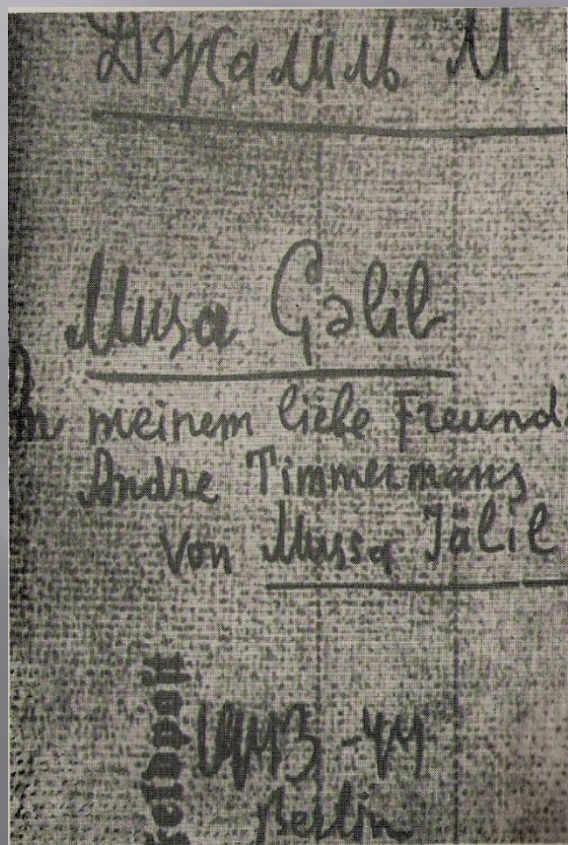 Джалиль М
Musa Gəlil
meinem liebe Freund
Andre Timmermans
Von Mussa Jälil
1943-44
Berlin